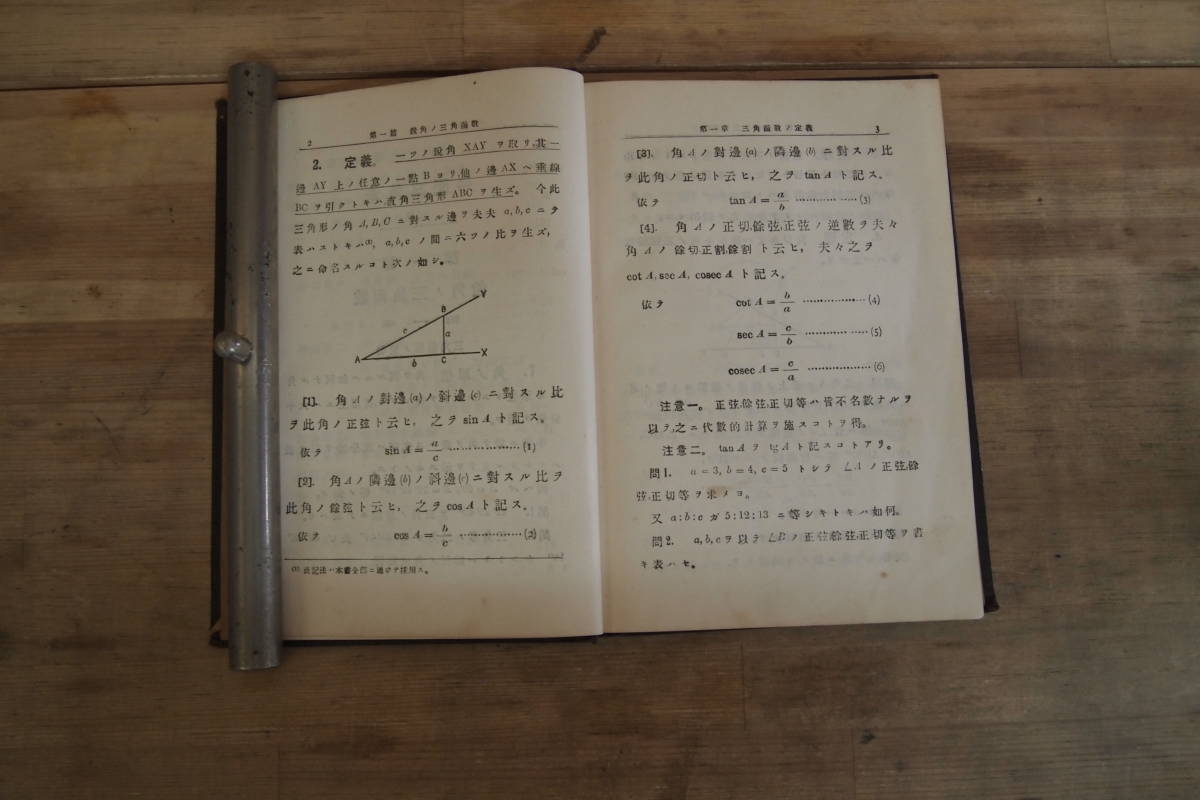 2 第一篇 銳角ノ三角函數
2. 定義。 一ツノ銳角 XAY ヲ取リ,其一
邊 AY 上ノ任意ノ一點 B ヨリ,他ノ邊 AX ヘ垂線
BC ヲ引クトキハ,直角三角形 ABC ヲ生ズ。 今此
三角形ノ角 A, B, C ニ對スル邊ヲ夫夫 a, b, c ニテ
表ハストキハ(1), a, b, c ノ間ニ六ツノ比ヲ生ズ,
之ニ命名スルコト次ノ如シ。
Y
B
c
a
A
b
C
X
[1]. 角 A ノ對邊 (a) ノ斜邊 (c) ニ對スル比
ヲ此角ノ正弦ト云ヒ, 之ヲ sin A ト記ス。
依テ sin A = a/c ………………(1)
[2]. 角 A ノ隣邊 (b) ノ斜邊 (c) ニ對スル比ヲ
此角ノ餘弦ト云ヒ, 之ヲ cos A ト記ス。
依テ cos A = b/c ………………(2)
(1) 此記法ハ本書全部ニ通ジテ採用ス。
第一章 三角函數ノ定義 3
[3]. 角 A ノ對邊 (a) ノ隣邊 (b) ニ對スル比
ヲ此角ノ正切ト云ヒ, 之ヲ tan A ト記ス。
依テ tan A = a/b ………………(3)
[4]. 角 A ノ正切,餘弦,正弦ノ逆數ヲ夫々
角 A ノ餘切,正割,餘割ト云ヒ, 夫々之ヲ
cot A, sec A, cosec A ト記ス。
依テ cot A = b/a ………………(4)
sec A = c/b ………………(5)
cosec A = c/a ………………(6)
注意一。 正弦,餘弦,正切等ハ皆不名數ナルヲ
以テ,之ニ代數的計算ヲ施スコトヲ得。
注意二。 tan A ヲ tg A ト記スコトアリ。
問1. a=3, b=4, c=5 トシテ ∠A ノ正弦,餘
弦,正切等ヲ求メヨ。
又 a:b:c ガ 5:12:13 ニ等シキトキハ如何。
問2. a, b, c ヲ以テ ∠B ノ正弦,餘弦,正切等ヲ書
キ表ハセ。